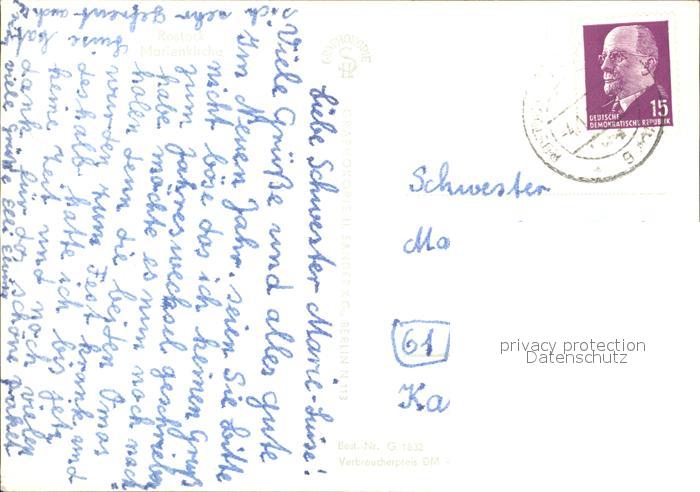 Liebe Schwester Marie-Luise!
Viele Grüße und alles gute
Im Neuen Jahr. seien Sie bitte
nicht böse das ich keinen Gruß
zum Jahreswechsel geschrieben
habe möchte es nun noch nach
holen denn die beiden Omas
wurden zum Fest krank und
deshalb hatte ich bis jetz
keine Zeit und noch vielen
dank für das schöne Paket
viele Grüße Elli
Luise hat
sich sehr gefreut
Rostock
Marienkirche
Schwester
Ma
61
Ka
DEUTSCHE
DEMOKRATISCHE REPUBLIK
15
Best. Nr. G 1832
Verbraucherpreis DM
privacy protection
Datenschutz